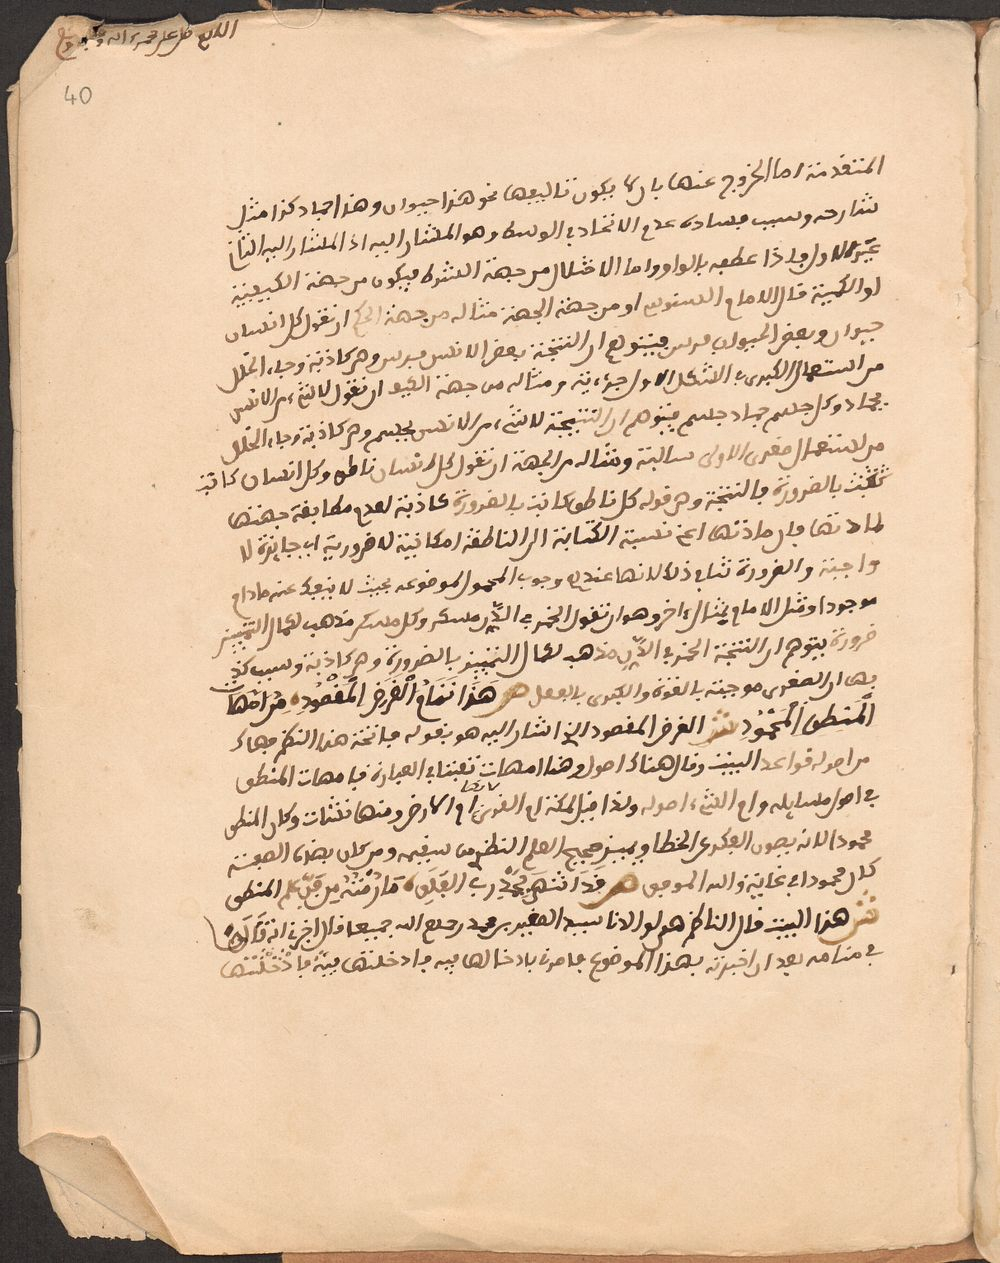 اللهم صل على محمد وءاله
40
المتقدمة اما الخروج عنها بان لا يكون تاليفها نحو هذا حيوان وهذا جماد كذا مثل
شارحه وسبب فساده عدم الاتحاد في الوسط وهو المشار اليه اذ المشار اليه الثان
غير الاول ولذا عطفه بالواو واما الاختلال من جهة الشرط فيكون من جهة الكيفية
او الكمية قال الامام السنوسي او من جهة الجهة مثاله من جهة الكم ان تقول كل انسان
حيوان وبعض الحيوان فرس فيتوهم ان النتيجة بعض الانس فرس وهي كاذبة وجاء الخلل
من استعمال الكبرى في الشكل الاول جزءية ومثاله من جهة الكيف ان تقول لا شيء من الانس
بجماد وكل جسم جماد جسم فيتوهم ان النتيجة لا شيء من الانس بجسم وهي كاذبة وجاء الخلل
من استعمال صغرى الاولى سالبة ومثاله من الجهة ان تقول كل انسان ناطق وكل انسان كاتب
بالضرورة فالنتيجة وهي قوله كل ناطق كاتب بالضرورة كاذبة لعدم مطابقة جهتها
لمادتها فان مادتها اعني نسبة الكتابة الى الناطقة امكانية لا ضرورية اي جايزة لا
واجبة والضرورة تنافي ذلك لانها عندهم وجوب المحمول للموضوع بحيث لا ينفك عنه مادام
موجودا ومثل الامام بمثال ءاخر وهو ان تقول الخمر في الدن مسكر وكل مسكر مذهب لكمال التمييز
ضرورة يتوهم ان النتيجة الخمر في الدن مذهب لكمال التمييز بالضرورة وهي كاذبة وسبب كذ
بها ان الصغرى موجبة بالقوة والكبرى بالفعل ص هَذَا تَمَامُ الْغَرَضِ الْمَقْصُودِ مِنْ امَّهَاتِ
الْمَنْطِقِ الْمَحْمُودِ ش الغرض المقصود الذي اشار اليه هو بقوله فاتحة هذا النظم فهاك
من اصوله قواعد البيت وقال هناك اصول وهنا امهات تفننا في العبارة فامهات المنطق
في اصول مسايله وام الشيء اصوله ولذا قيل لمكة ام القرى لانها ام الارض ومنها نشئات وكان المنطق
محمودا لانه يصون الفكر عن الخطا ويميز صحيح العلم النظري من سقيمه ومن كان بهذه الصفة
كان محمودا في غاية والله الموفق ص قَدِ انْتَهَى بِحَمْدِ رَبِّ الفَلَقِ مَا رُمْتُهُ مِنْ فَنِّ عِلْمِ المنطق
ش هذا البيت قال الناظم هو لوالدنا سيدي الصغير بن محمد رحمهم الله جميعا قال اخبرني انه قاله
في منامه بعد ان اخبرته بهذا الموضوع فامرني بادخالها فيه فادخلتها فيه فادخلتها